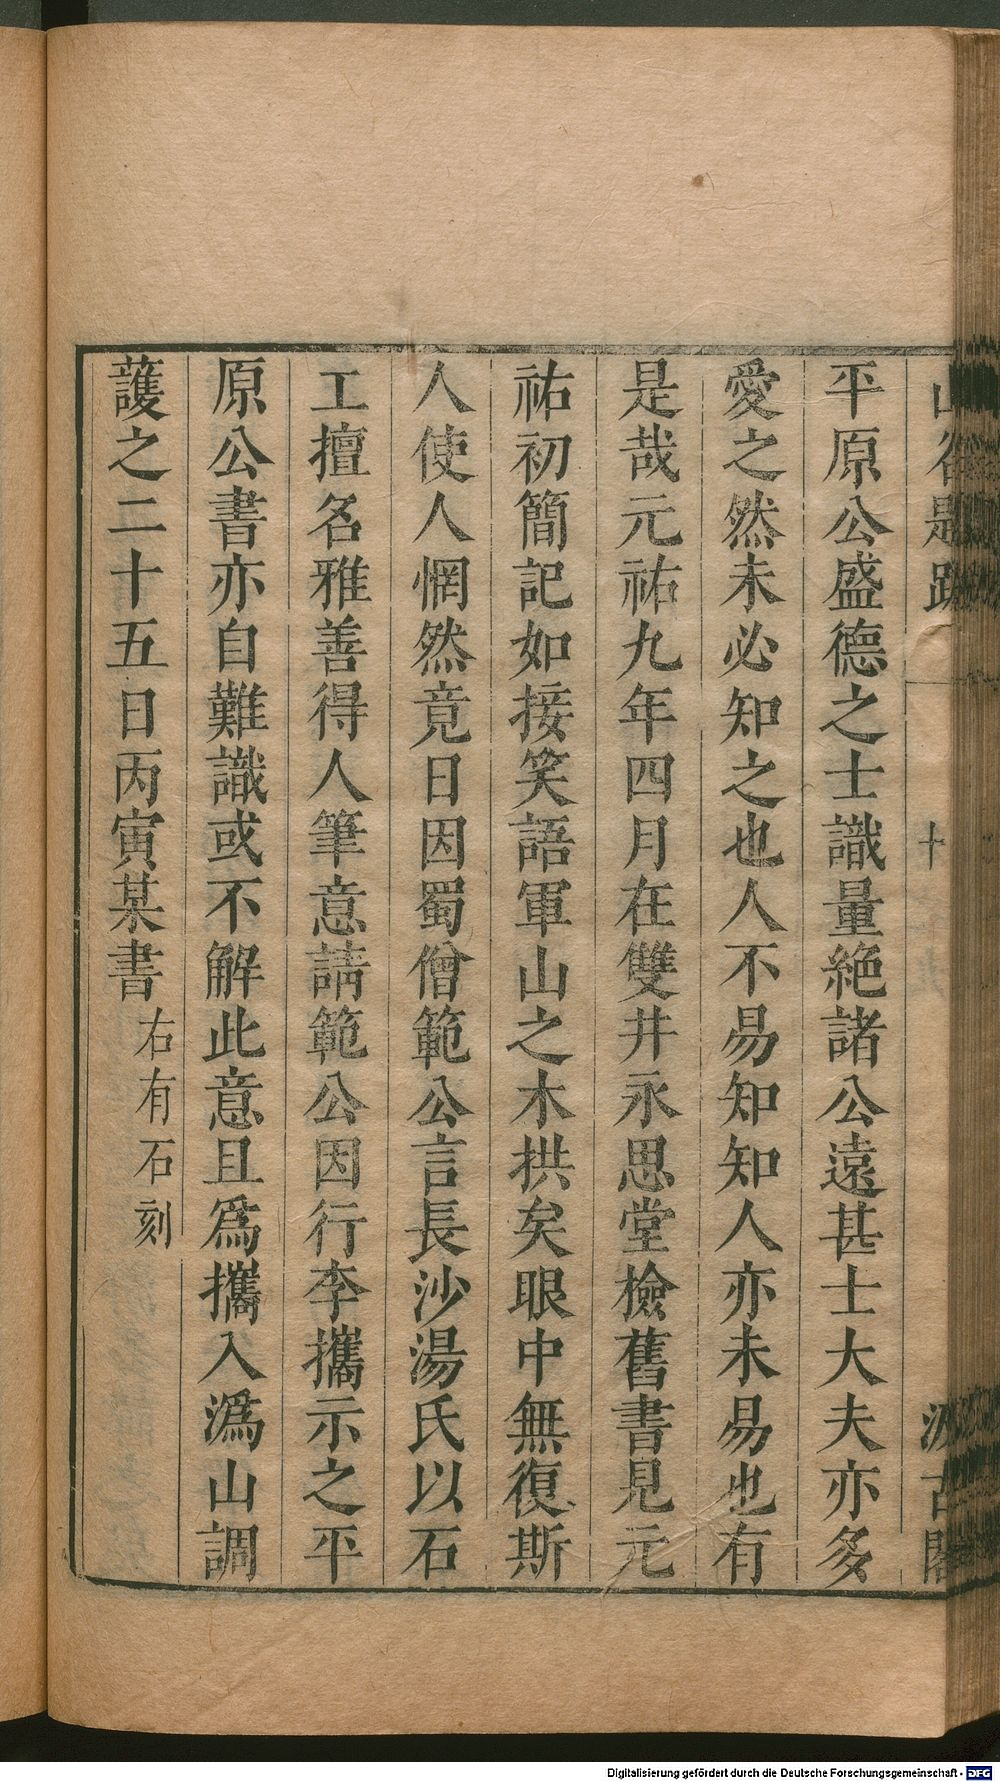 山谷題跋
十
汲古閣
平原公盛德之士識量絕諸公遠甚士大夫亦多
愛之然未必知之也人不易知知人亦未易也有
是哉元祐九年四月在雙井永思堂檢舊書見元
祐初簡記如接笑語軍山之木拱矣眼中無復斯
人使人惘然竟日因蜀僧範公言長沙湯氏以石
工擅名雅善得人筆意請範公因行李攜示之平
原公書亦自難識或不解此意且爲攜入潙山調
護之二十五日丙寅某書
右有石刻
Digitalisierung gefördert durch die Deutsche Forschungsgemeinschaft - DFG